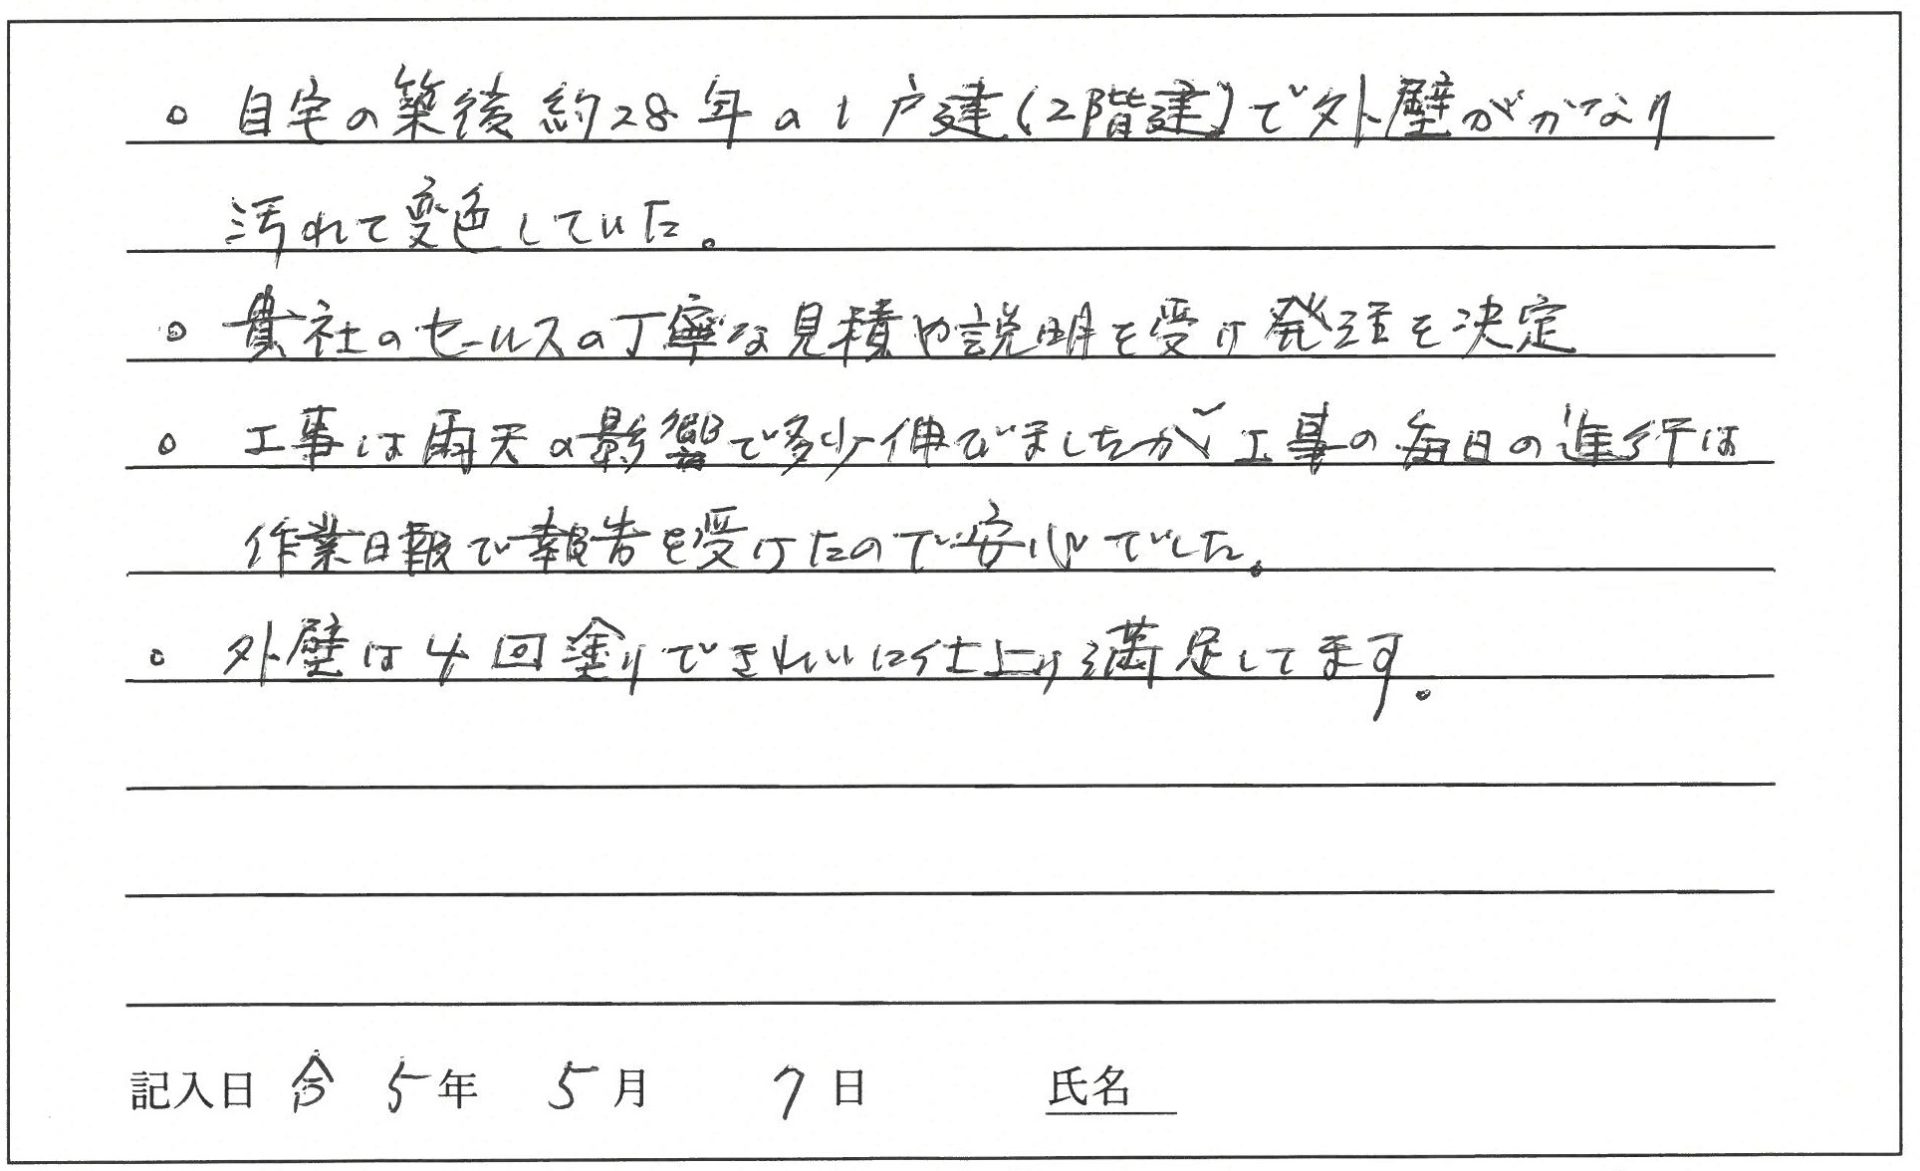 。自宅の築後約28年の1戸建(2階建)で外壁がかなり
汚れて変色していた。
。貴社のセールスの丁寧な見積や説明を受け発注を決定
。工事は雨天の影響で多少伸びましたが工事の毎日の進行は
作業日報で報告を受けたので安心でした。
。外壁は4回塗りできれいに仕上り満足してます。
記入日 令 5年 5月 7日 氏名